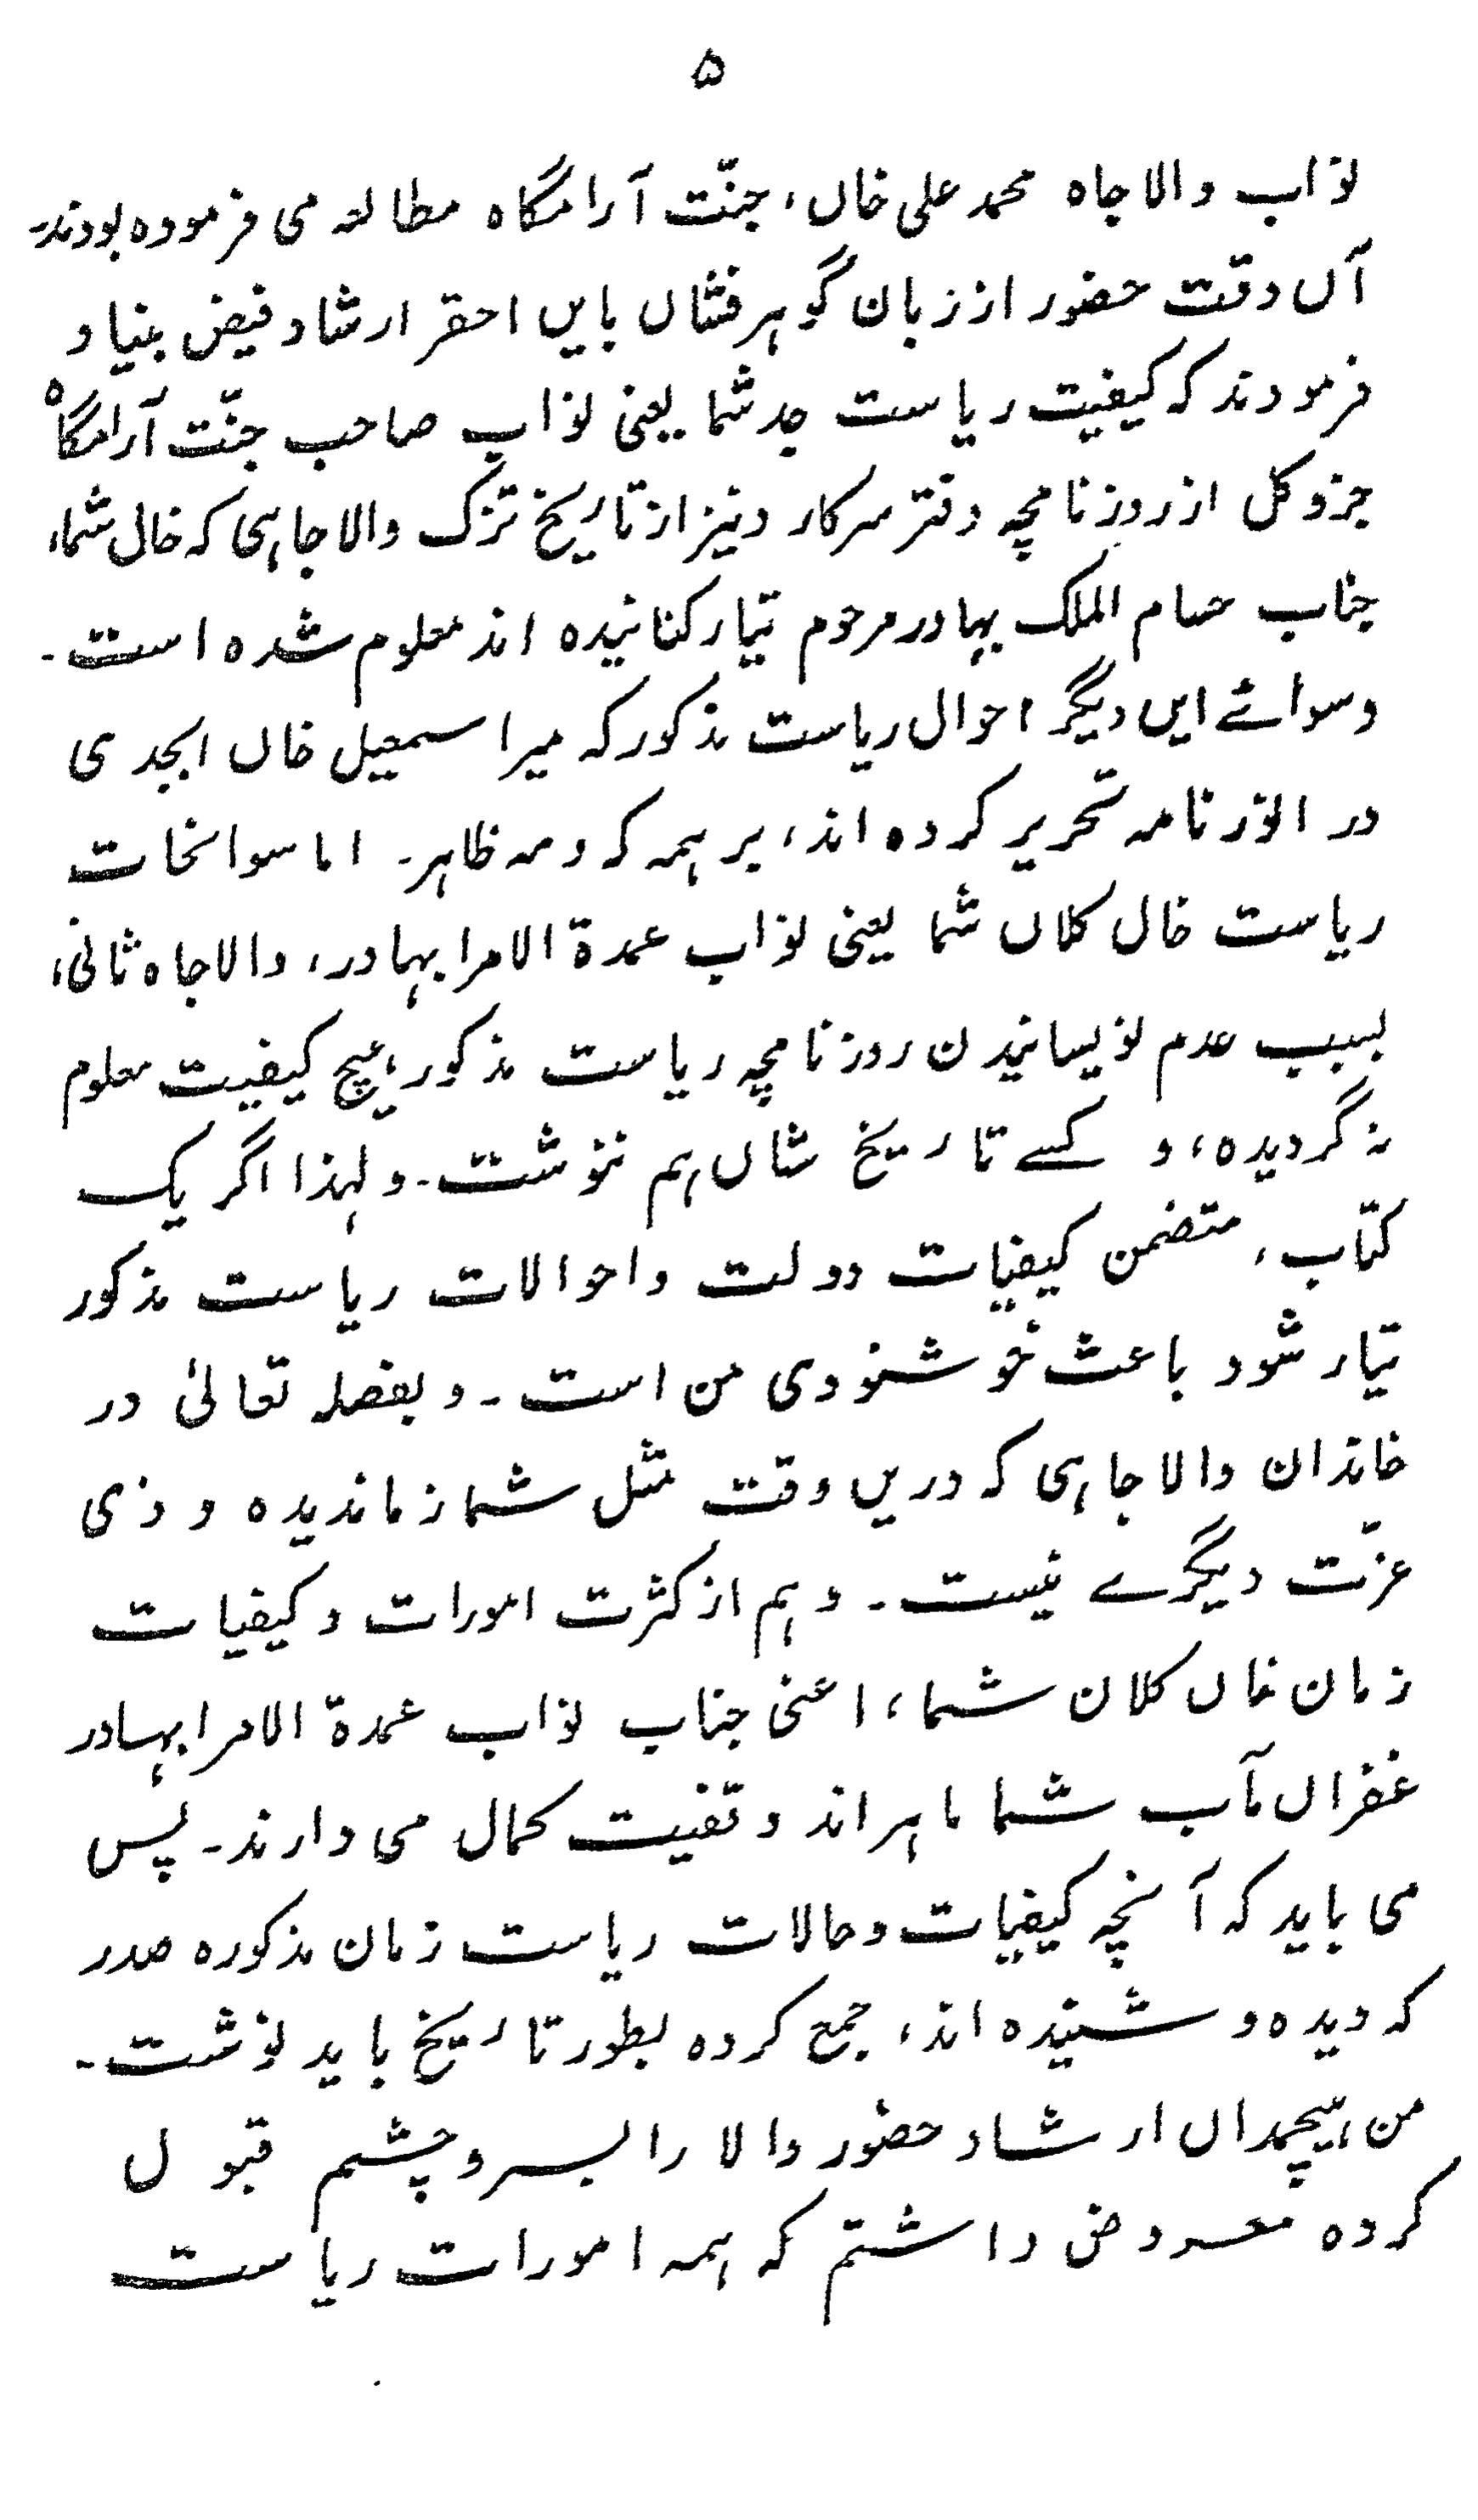 ۵
نواب والا جاه محمد علی خاں، جنّت آرامگاه مطالعه می فرموده بودند۔
آں وقت حضور از زبان گوہر فشاں بایں احقر ارشاد فیض بنیاد
فرمودند که کیفیت ریاست جد شما یعنی نواب صاحب جنّت آرامگاه
جزو کل از روزنامچه دفتر سرکار و نیز از تاریخ تزک والا جاہی که خال شما،
جناب حسام الملک بہادر مرحوم تیار کنانیده اند معلوم شده است۔
و سوائے ایں دیگر احوال ریاست مذکور که میر اسمعیل خاں ابجدی
در انور نامه تحریر کرده اند، بر ہمه که و مه ظاہر۔ اما سوانحات
ریاست خال کلاں شما یعنی نواب عمدة الامرا بہادر، والا جاه ثانی،
بسبب عدم نویسانیدن روزنامچه ریاست مذکور ہیچ کیفیت معلوم
نه گردیده، و کسے تاریخ شاں ہم ننوشت۔ ولہذا اگر یک
کتاب، متضمن کیفیات دولت و احوالات ریاست مذکور
تیار شود باعث خوشنودی من است۔ و بفضله تعالیٰ در
خاندان والا جاہی که دریں وقت مثل شما زماندیده و ذی
عزّت دیگرے نیست۔ و ہم از کثرت امورات و کیفیات
زمان خاں کلان شما، اعنی جناب نواب عمدة الامرا بہادر
غفراں مآب شما ماہر اند و قفیت کمال می دارند۔ پس
می باید که آنچه کیفیات و حالات ریاست زمان مذکوره صدر
که دیده و شنیده اند، جمع کرده بطور تاریخ باید نوشت۔
من ہیچمداں ارشاد حضور والا را بسر و چشم قبول
کرده معروض داشتم که ہمه امورات ریاست